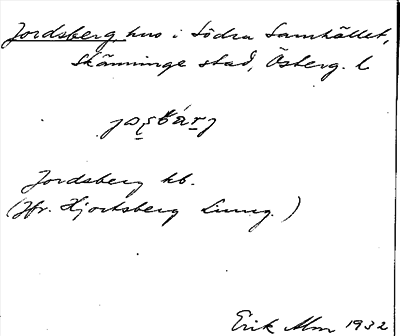 Jordsberg hus i Södra Samhället,
Skänninge stad, Österg. l
Jordsberg hb.
(Jfr. Hjortsberg Ljung.)
Erik Mm 1932